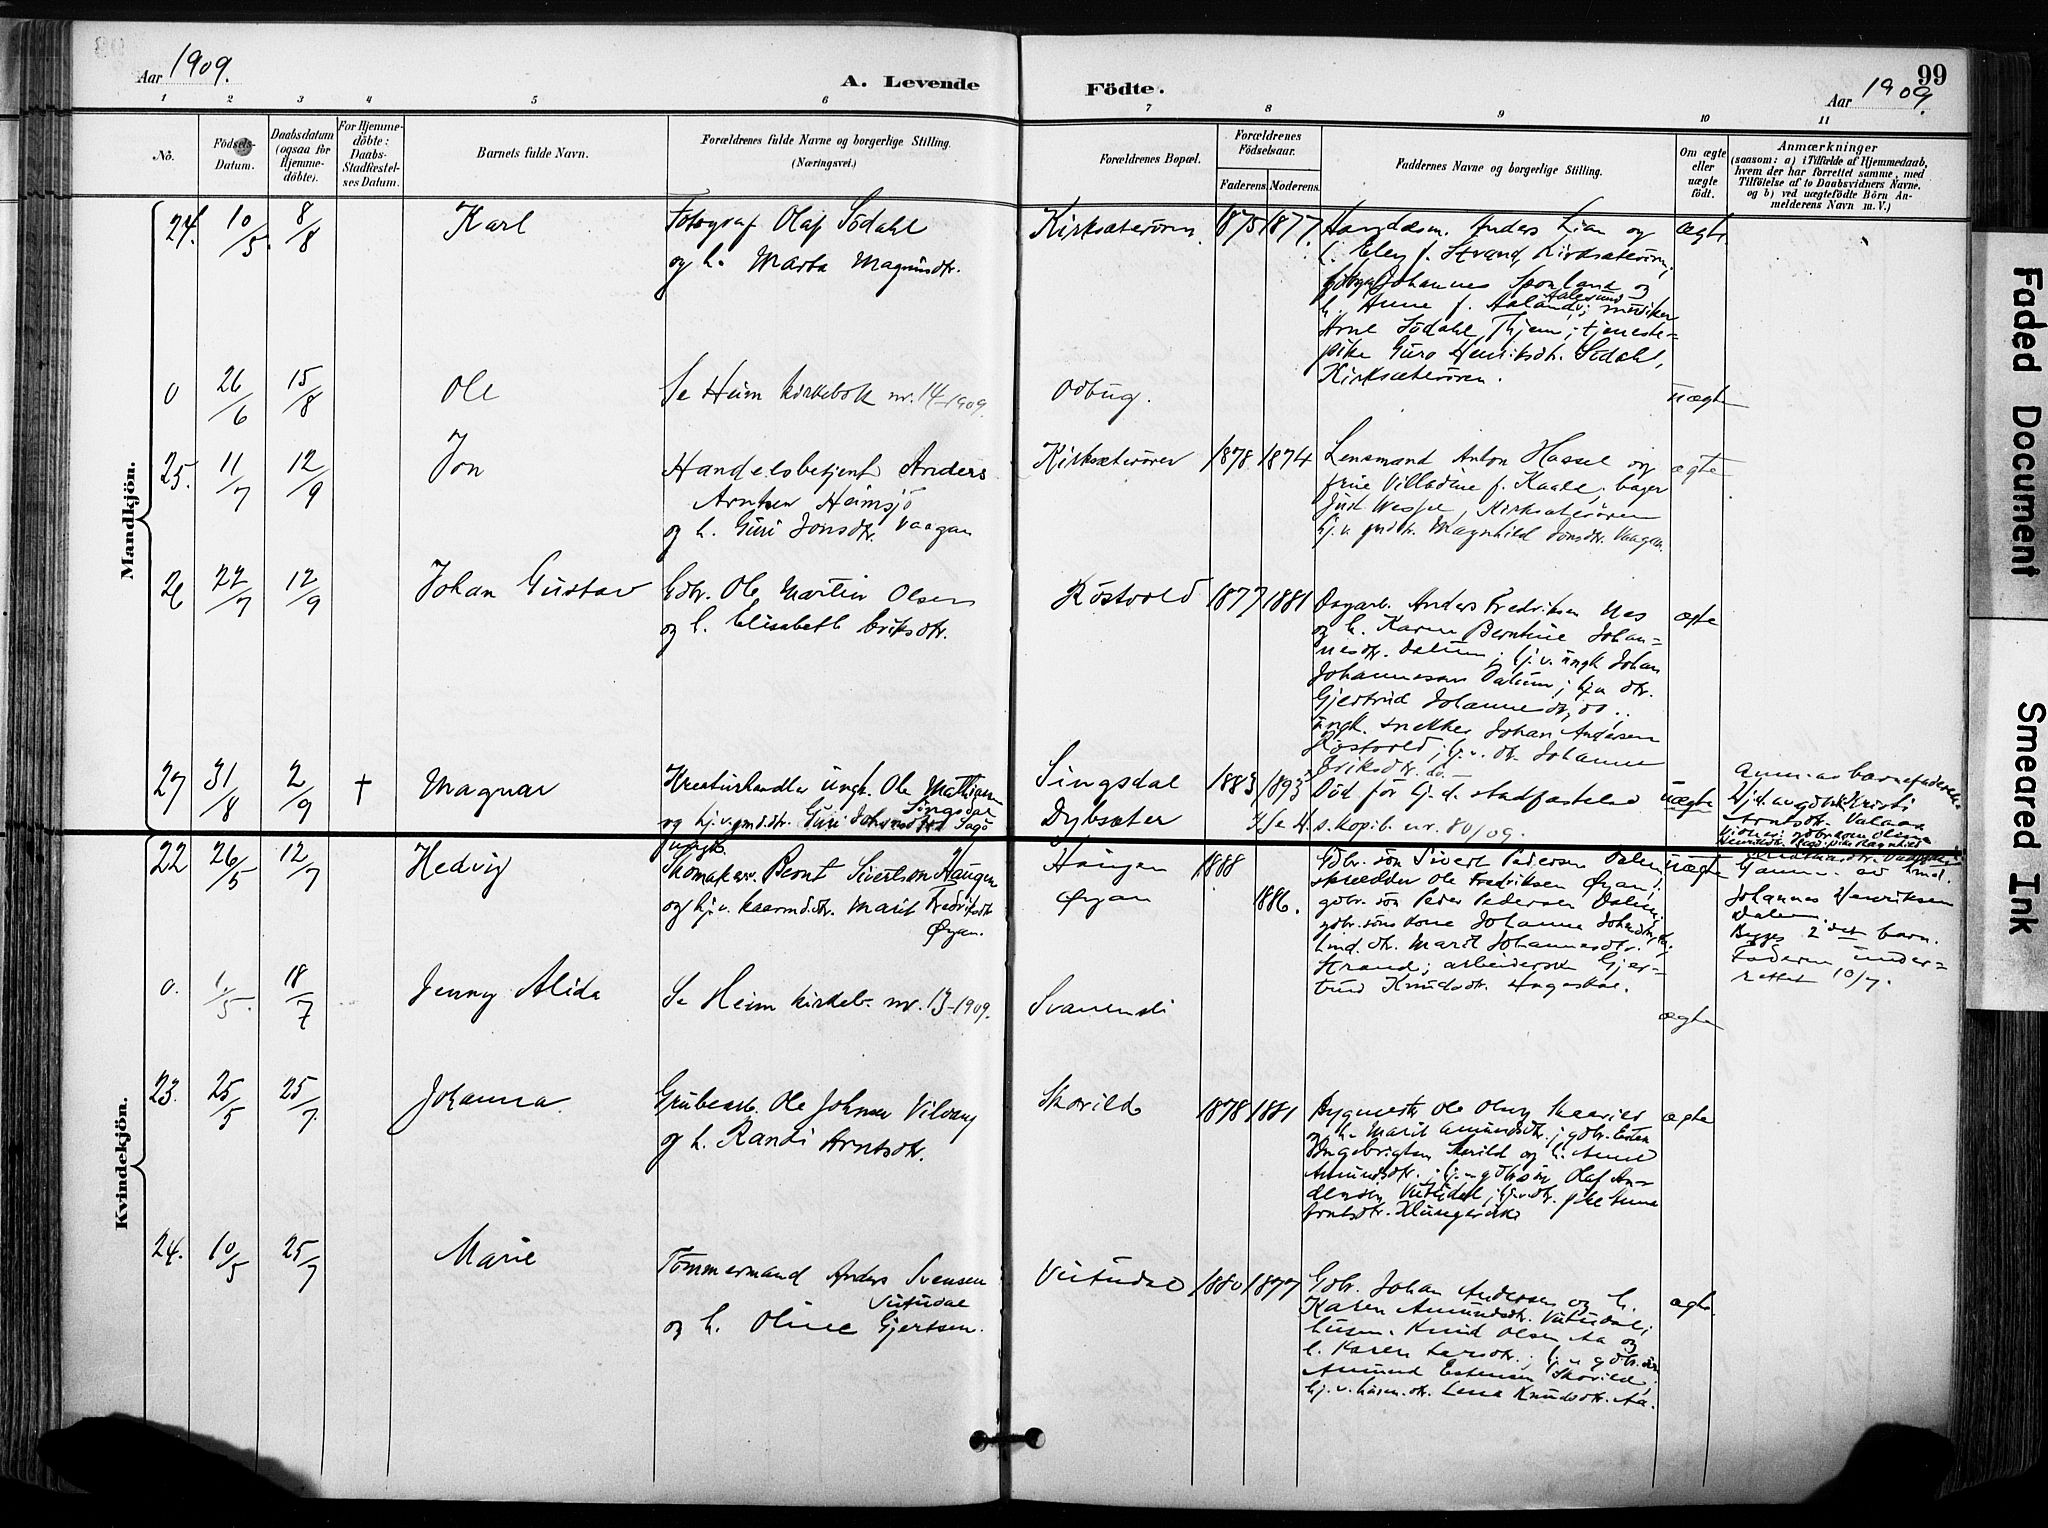 Aar 1909.
A. Levende Födte.
99
Aar 1909.
1 2 3 4 5 6 7 8 9 10 11
No.
Födsels-Datum.
Daabsdatum (ogsaa for Hjemmedöbte).
For Hjemmedöbte: Daabs-Stadfæstelses Datum.
Barnets fulde Navn.
Forældrenes fulde Navne og borgerlige Stilling. (Næringsvei.)
Forældrenes Bopæl.
Forældrenes Födselsaar.
Faderens. Moderens.
Faddernes Navne og borgerlige Stilling.
Om ægte eller uægte födt.
Anmærkninger
(saasom: a) i Tilfælde af Hjemmedaab, hvem der har forrettet samme, med Tilföielse af to Daabsvidners Navne. og b) ved uægtefödte Börn Anmelderens Navn m. V.)
Mandkjön.
24. 10/5. 8/8 Karl
Fotograf Olaf Södahl
og h. Marta Magnusdtr.
Kirksæterören. 1875 1877.
Handelsm. Anders Lian og
h. Elen f. Strand, Kirksæterören,
fotogr. Johannes Sponland og
h. Anne f. Aaland, Aalesund; musiker
Arne Södahl, Thjem; tjeneste-
pike Guro Henriksdtr. Södahl,
Kirksæterören.
ægte.
0 26/6 15/8 Ole
Se Heim kirkebok nr. 14-1909.
uægte
25. 11/7 12/9 Jon
Handelsbetjent Anders
Arntsen Heimsjö
og h. Guri Jonsdtr. Vaagan
Kirksæterören 1878 1874
Lensmand Anton Hassel og
frue Villadine f. Kaald, bager
Just Wessel, Kirksæterören
hj.v. gmdtr. Magnhild Jonsdtr. Vaagan.
ægte
26 22/7 12/9 Johan Gustav
Gdbr. Ole Martin Olsen
og h. Elisabeth Eriksdtr.
Röstvold 1877 1881
Dagarb. Anders Fredriksen Nes
og h. Karen Berntine Johan-
nesdtr. Dalum; hj.v. ungk. Johan
Johannessen Dalum; hj.v. dtr.
Gjertrud Johannesdtr, do.;
ungk. snekker Johan Andersen
Röstvold; hj.v. dtr. Johanne
Eriksdtr. do.
ægte
27 31/8 2/9 † Magnar
Kreaturhandler ungk. Ole Mathisen
Singsdal
og hj.v. gmd.dtr. Guri Sagö
Singsdal
Dybsæter
1883 1893
Död för hj.d. stadfæstelse
s. kop.b. nr. 80/09.
uægte
Kvindekjön.
22 26/5 12/7 Hedvig
Ungk.
Skomaker Bernt Sivertsen Haugen
og hj.v. kaarmd.dtr. Marit Fredriksdtr
Öyan.
Haugen
Øyan
1888
1886.
Gdbr. sön Sivert Pedersen Dalum,
skrædder Ole Fredriksen Øyan;
gdbr. sön Peder Pedersen Dalum;
gdbr. söns kone Johanna
Ind. dtr. Marit Johannesdtr.
Strand; arbeiderske Gjer-
trud Knudsdtr. Hagaskal.
uægte
Johannes Henriksen
Dalum.
Begges 2det barn.
Faderen under-
rettet 10/7.
0. 1/5. 18/7 Jenny Alida
Se Heim kirkeb. nr. 13-1909.
Svanemsli
ægte
23. 25/5 25/7. Johanna.
Grubearb. Ole Johnsen Vilvang
og h. Randi Arntsdtr.
Skorild 1878 1881
Bygmestr Ole Olsen Skarild
og h. Marit Amundsdtr.; gdbr. Esten
Ingebrigtsen Skorild og h. Anne
Amundsdtr.; hj.v. gdbr.sön Olaf An-
dersen, Vutudal; hj.v. dtr. pike Anna
Arntsdtr. Klungervik
ægte
24. 10/5 25/7 Marie
Tömmermand Anders Svensen
Vutudal
og h. Oline Gjertsen.
Vutudal 1880 1877
Gdbr. Johan Andersen og h.
Karen Amundsdtr. Vutudal;
husm. Knud Olsen Aa og
h. Karen Larsdtr.; hj.v. gdbr. sön
Amund Estensen Skorild;
hj.v. husm. dtr. Lena Knudsdtr. Aa.
ægte.
Faded Document
Smeared Ink